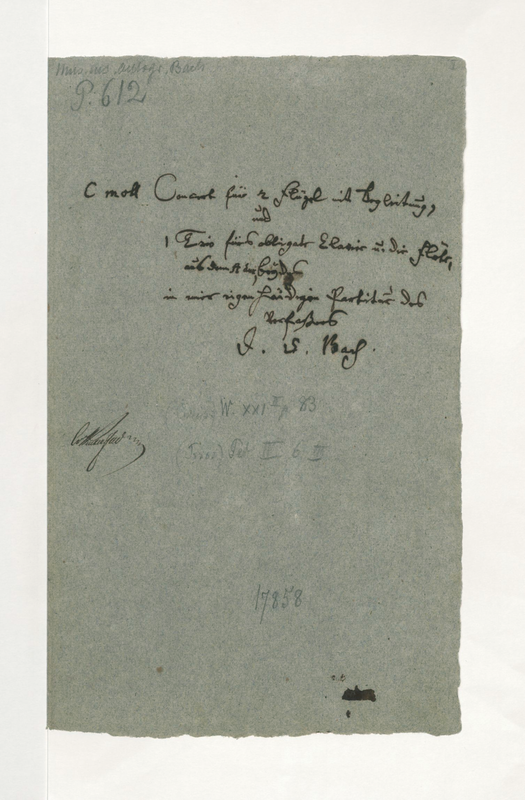 Mus. ms. autogr. Bach
P. 612
C moll Concert für 2 Flügel mit Begleitung,
und
1 Trio fürs obligate Clavier u. die Flöte,
aus dem A ♮, beydes
in eigenhändiger Partitur des
Verfaßers
J. S. Bach.
W. XXI II p. 83
(Trio) Pet. III 6 II
17858